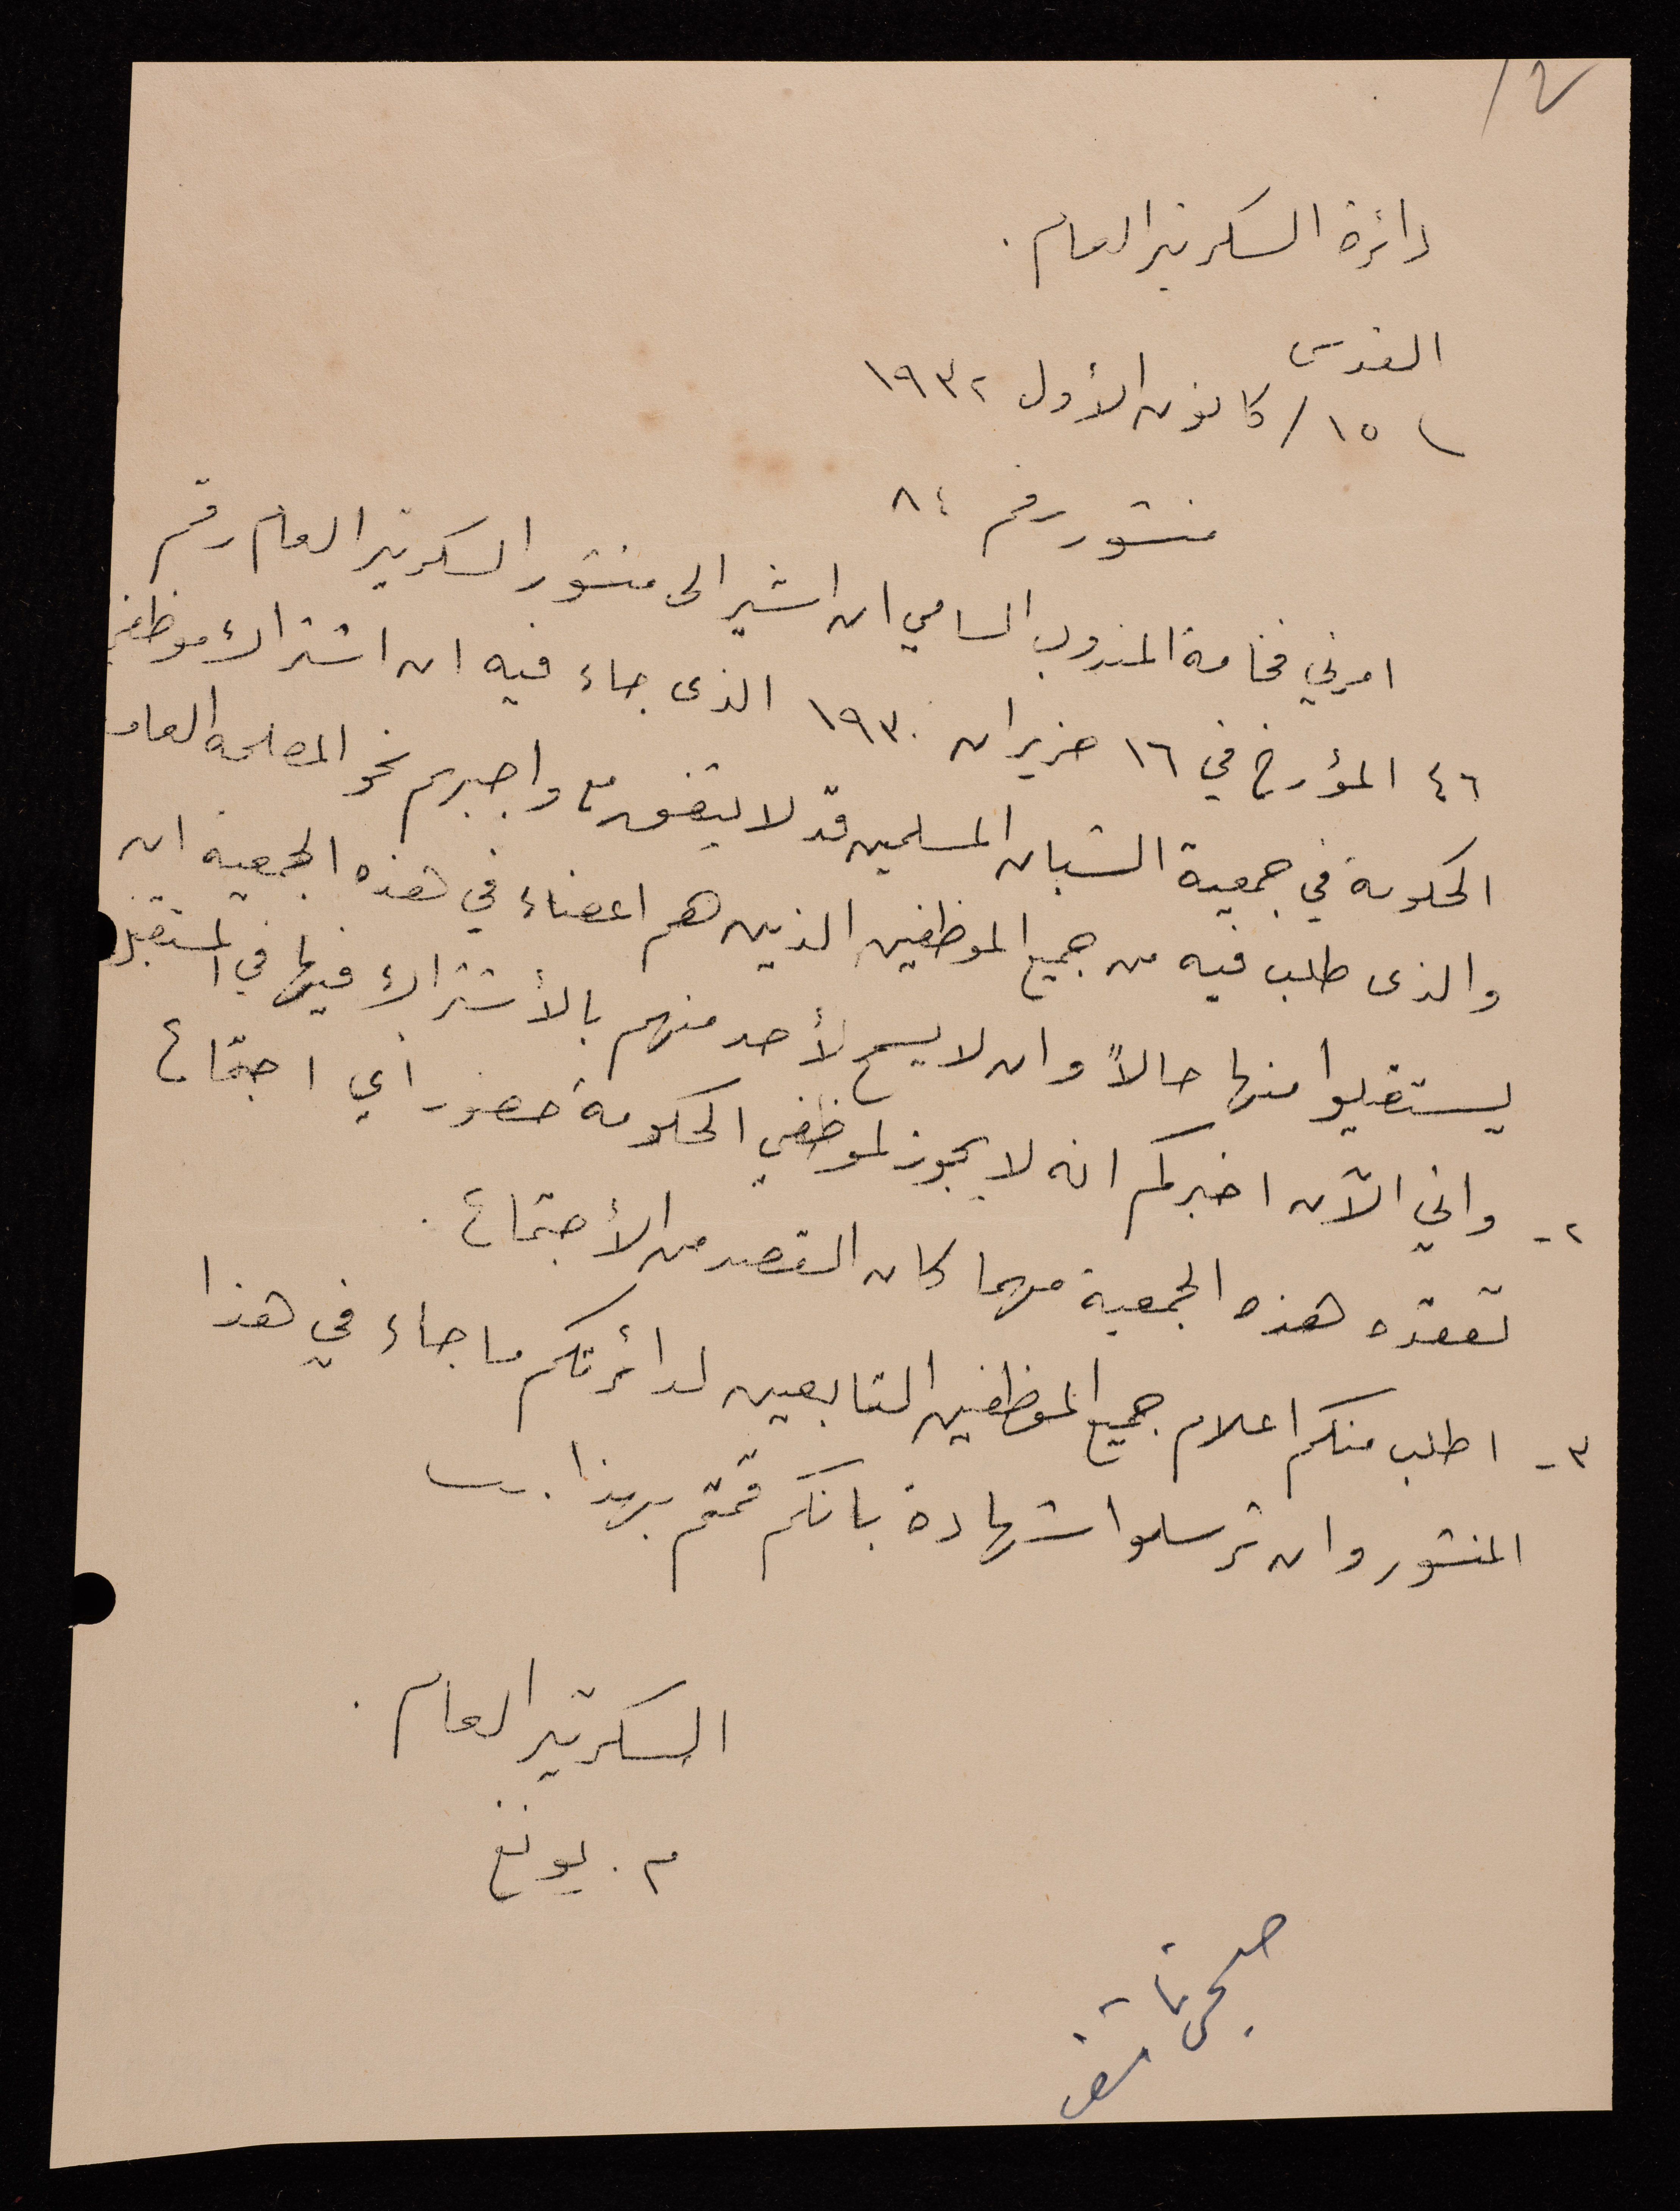 دائرة السكرتير العام.
القدس
١٥ / كانون الأول ١٩٣٢
منشور رقم ٨٤
امرني فخامة المندوب السامي ان اشير الى منشور السكرتير العام رقم
٤٦ المؤرخ في ١٦ حزيران ١٩٣٠ الذى جاء فيه ان اشتراك موظفي
الحكومة في جمعية الشبان المسلمين قد لا يتفق مع واجبهم نحو المصلحة العامة
والذى طلب فيه من جميع الموظفين الذين هم اعضاء في هذه الجمعية ان
يستقيلوا منها حالاً وان لا يسمح لأحد منهم بالأشتراك فيها في المستقبل
٢- واني الآن اخبركم انه لا يجوز لموظفي الحكومة حضور أي اجتماع
تعقده هذه الجمعية مهما كان القصد من الأجتماع.
٣- اطلب منكم اعلام جميع الموظفين التابعين لدائرتكم ما جاء في هذا
المنشور وان ترسلوا شهادة بانكم قمتم بهذا.
السكرتير العام.
م. يونغ